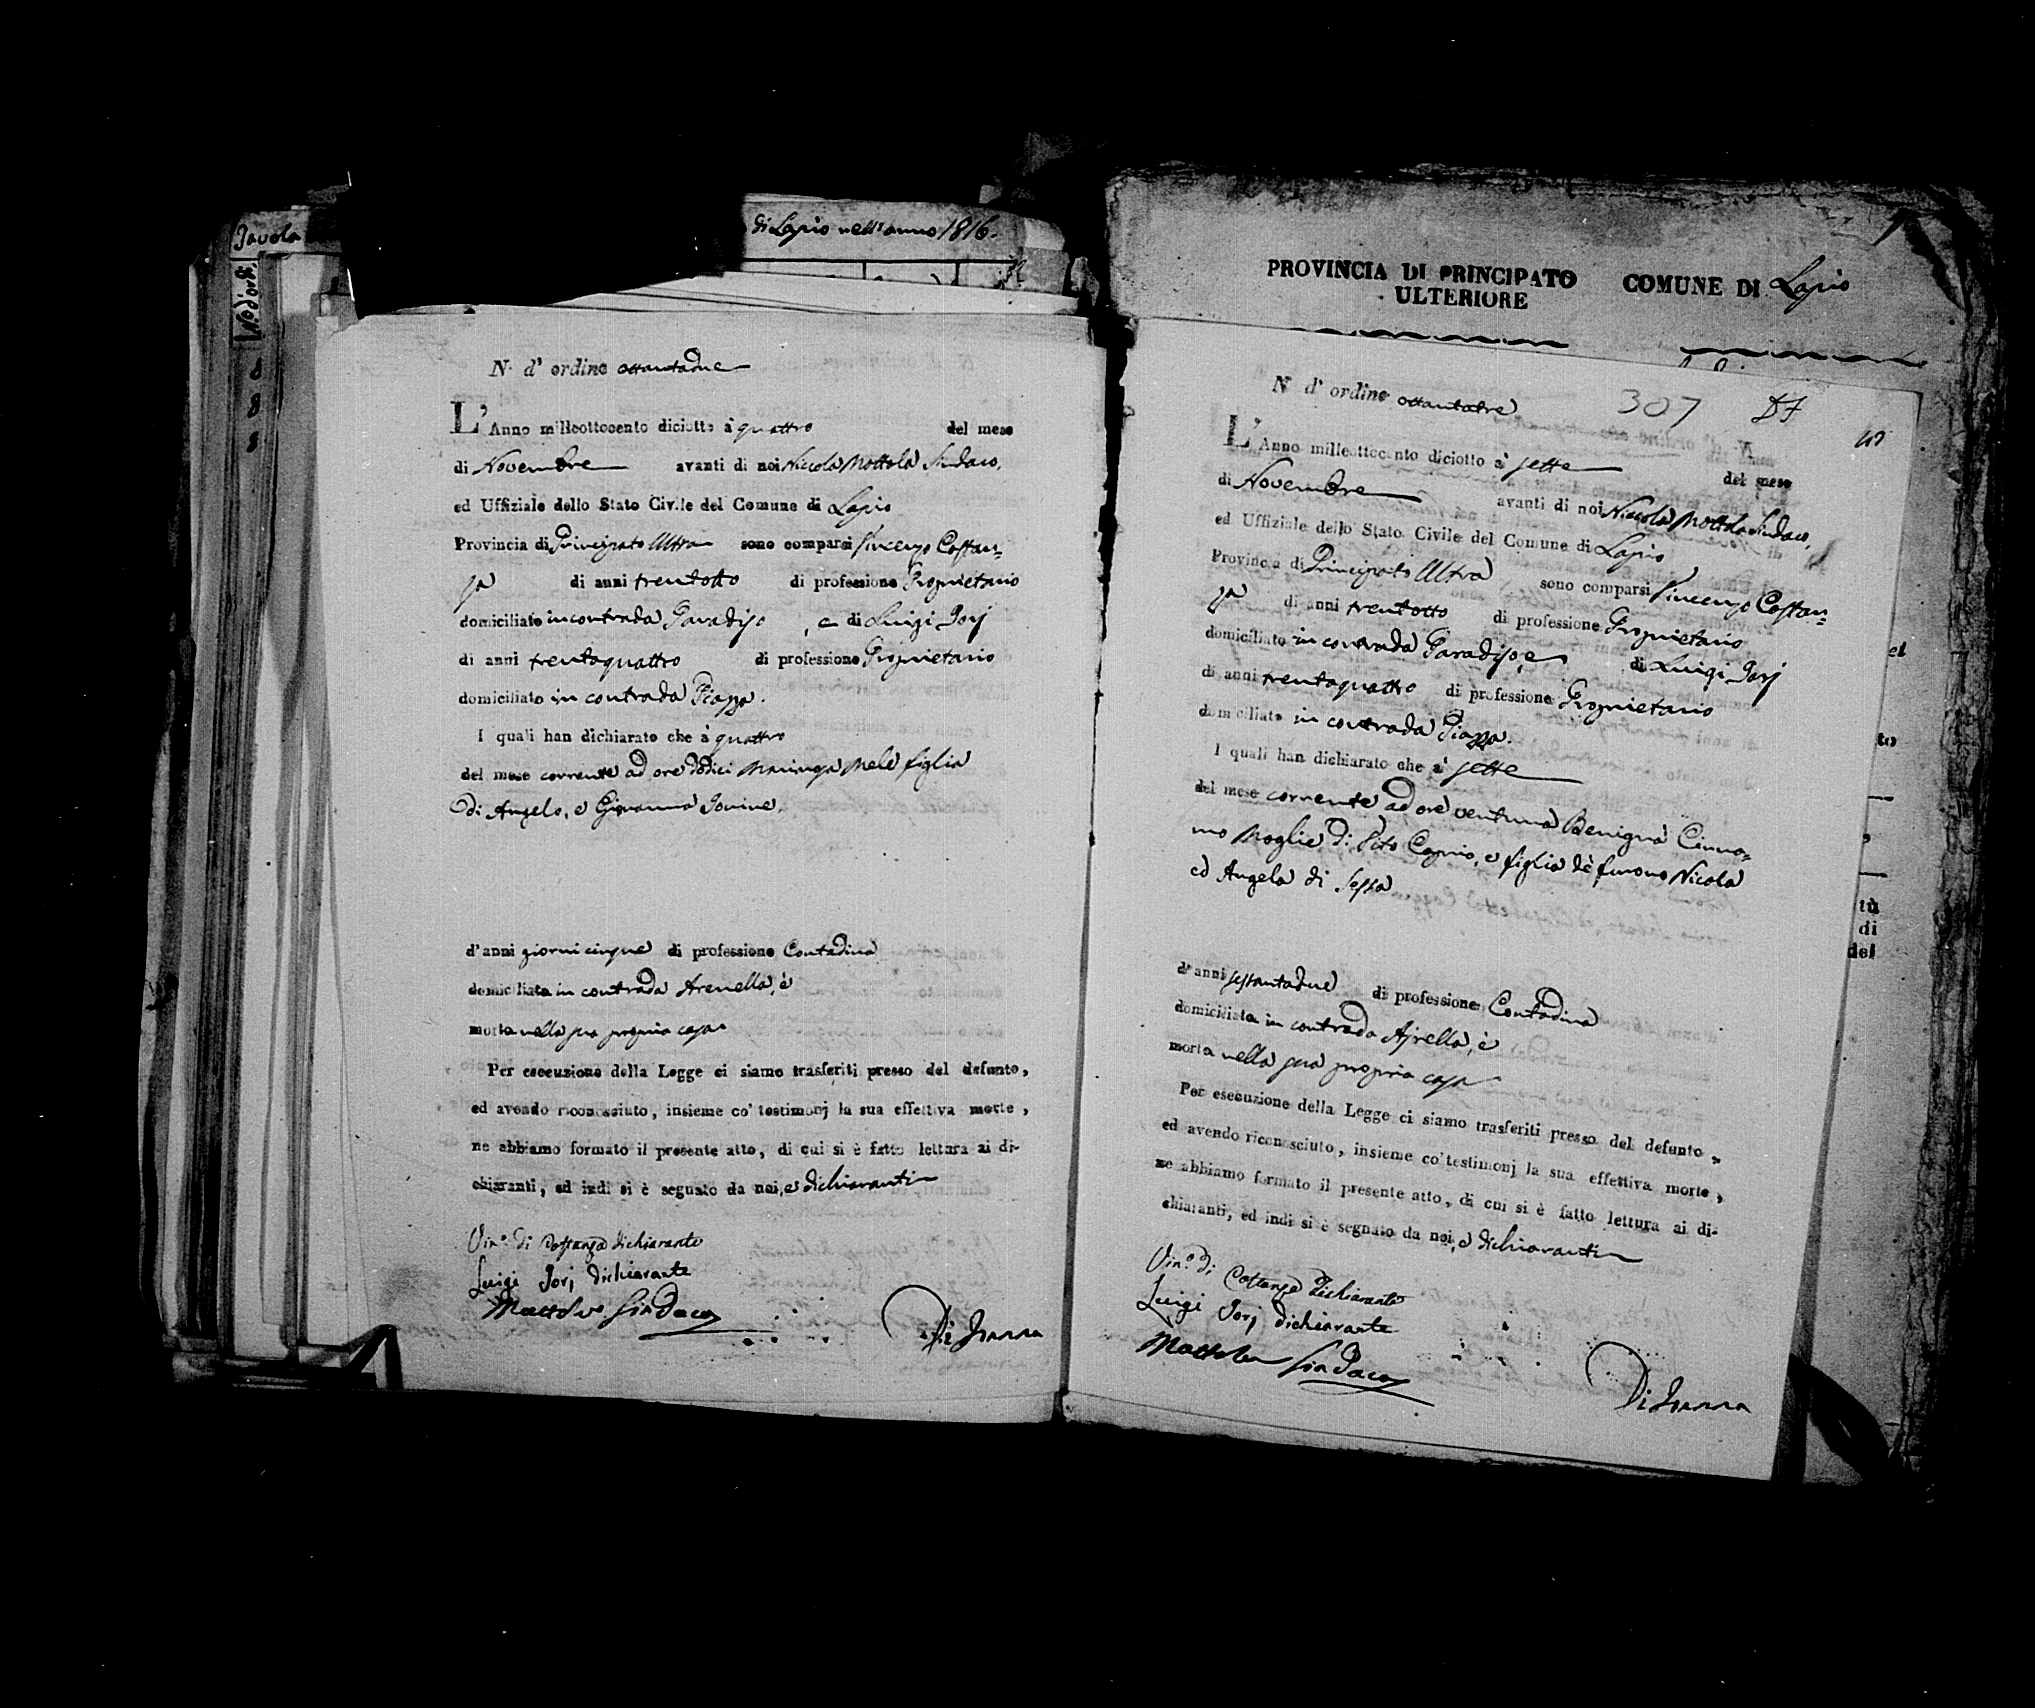 Tavola
di Lapio nell'anno 1816.
N.o d'ord.
N. d' ordine ottantadue
L'Anno milleottocento diciotto à quattro del mese
di Novembre avanti di noi Niccola Mottola Sindaco,
ed Uffiziale dello Stato Civile del Comune di Lapio
Provincia di Principato Ultra sono comparsi Vincenzo Costan=
za di anni trentotto di professione Proprietario
domiciliato in contrada Paradiso, e di Luigi Jorj
di anni trentaquattro di professione Proprietario
domiciliato in contrada Piazza.
I quali han dichiarato che à quattro
del mese corrente ad ore dodici Maninza Mele figlia
di Angelo, e Giovanna Jonine.
d'anni giorni cinque di professione Contadina
domiciliata in contrada Arenella, è
morta nella sua propria casa
Per esecuzione della Legge ci siamo trasferiti presso del defunto,
ed avendo riconosciuto, insieme co' testimonj la sua effettiva morte,
ne abbiamo formato il presente atto, di cui si è fatto lettura ai di-
chiaranti, ed indi si è segnato da noi, e dichiaranti
Vin.o di Costanza dichiarante
Luigi Jorj dichiarante
Mottola Sindaco
Di Joanna
PROVINCIA DI PRINCIPATO ULTERIORE COMUNE DI Lapio
N d' ordine ottantatre 307
L'Anno milleottocento diciotto à sette del mese
di Novembre avanti di noi Niccola Mottola Sindaco,
ed Uffiziale dello Stato Civile del Comune di Lapio
Provincia di Principato Ultra sono comparsi Vincenzo Costan=
za di anni trentotto di professione Proprietario
domiciliato in contrada Paradiso, e di Luigi Jorj
di anni trentaquattro di professione Proprietario
domiciliato in contrada Piazza.
I quali han dichiarato che à sette
del mese corrente ad ore ventuna Benigna Cinno=
mo Moglie di Vito Caprio, e figlia de' furono Nicola
ed Angela di Sessa
d'anni sessantadue di professione Contadina
domiciliata in contrada Ajrella, è
morta nella sua propria casa
Per esecuzione della Legge ci siamo trasferiti presso del defunto,
ed avendo riconosciuto, insieme co' testimonj la sua effettiva morte,
ne abbiamo formato il presente atto, di cui si è fatto lettura ai di-
chiaranti, ed indi si è segnato da noi, e dichiaranti
Vin.o di Costanza dichiarante
Luigi Jorj dichiarante
Mottola Sindaco
Di Joanna